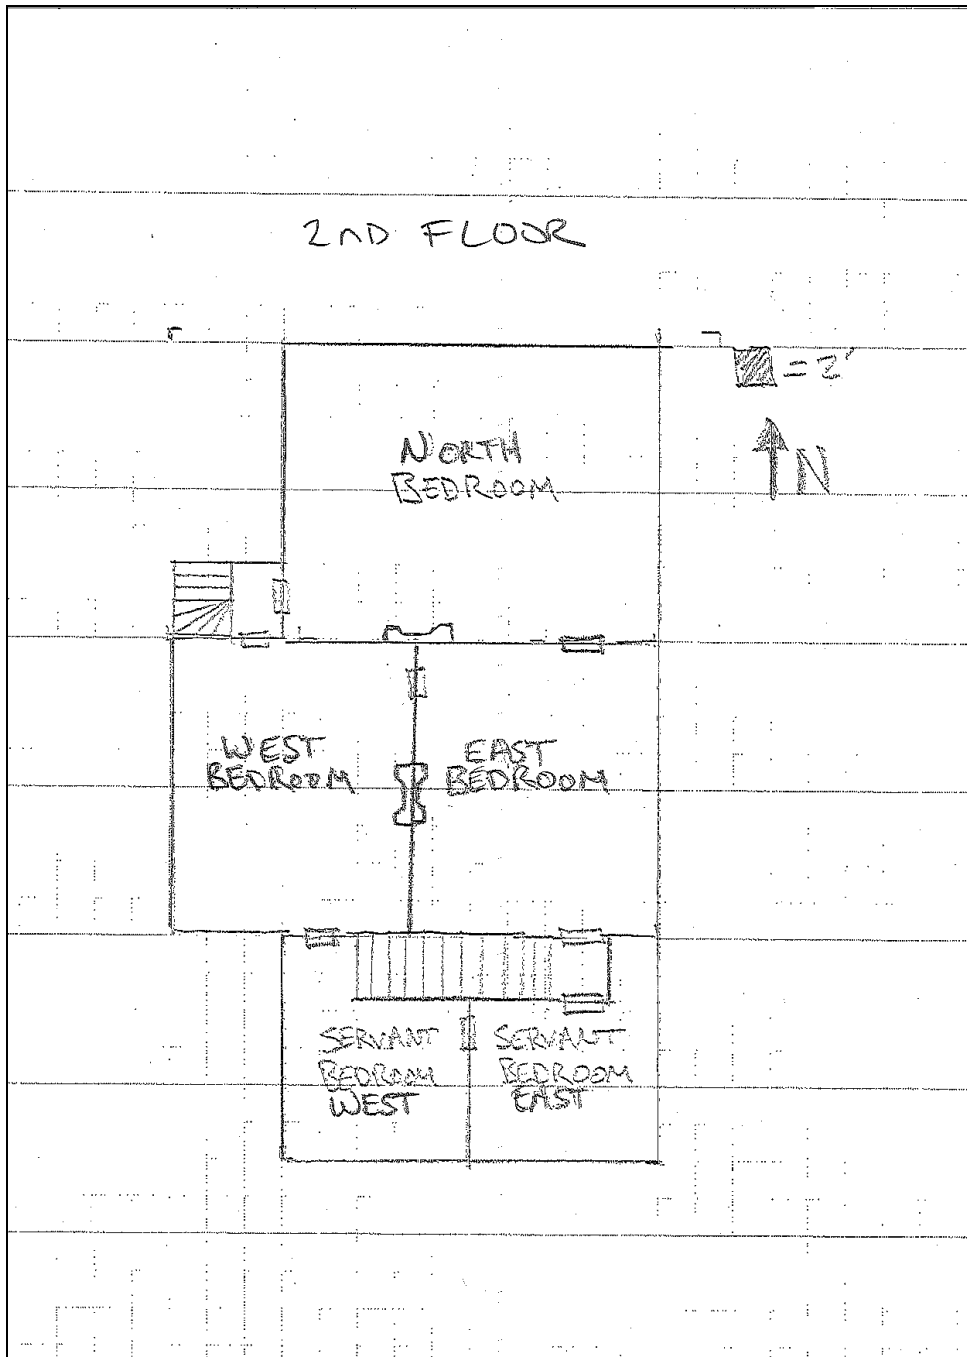 2ND FLOOR
= 2'
NORTH
BEDROOM
N
WEST
BEDROOM
EAST
BEDROOM
SERVANT
BEDROOM
WEST
SERVANT
BEDROOM
EAST